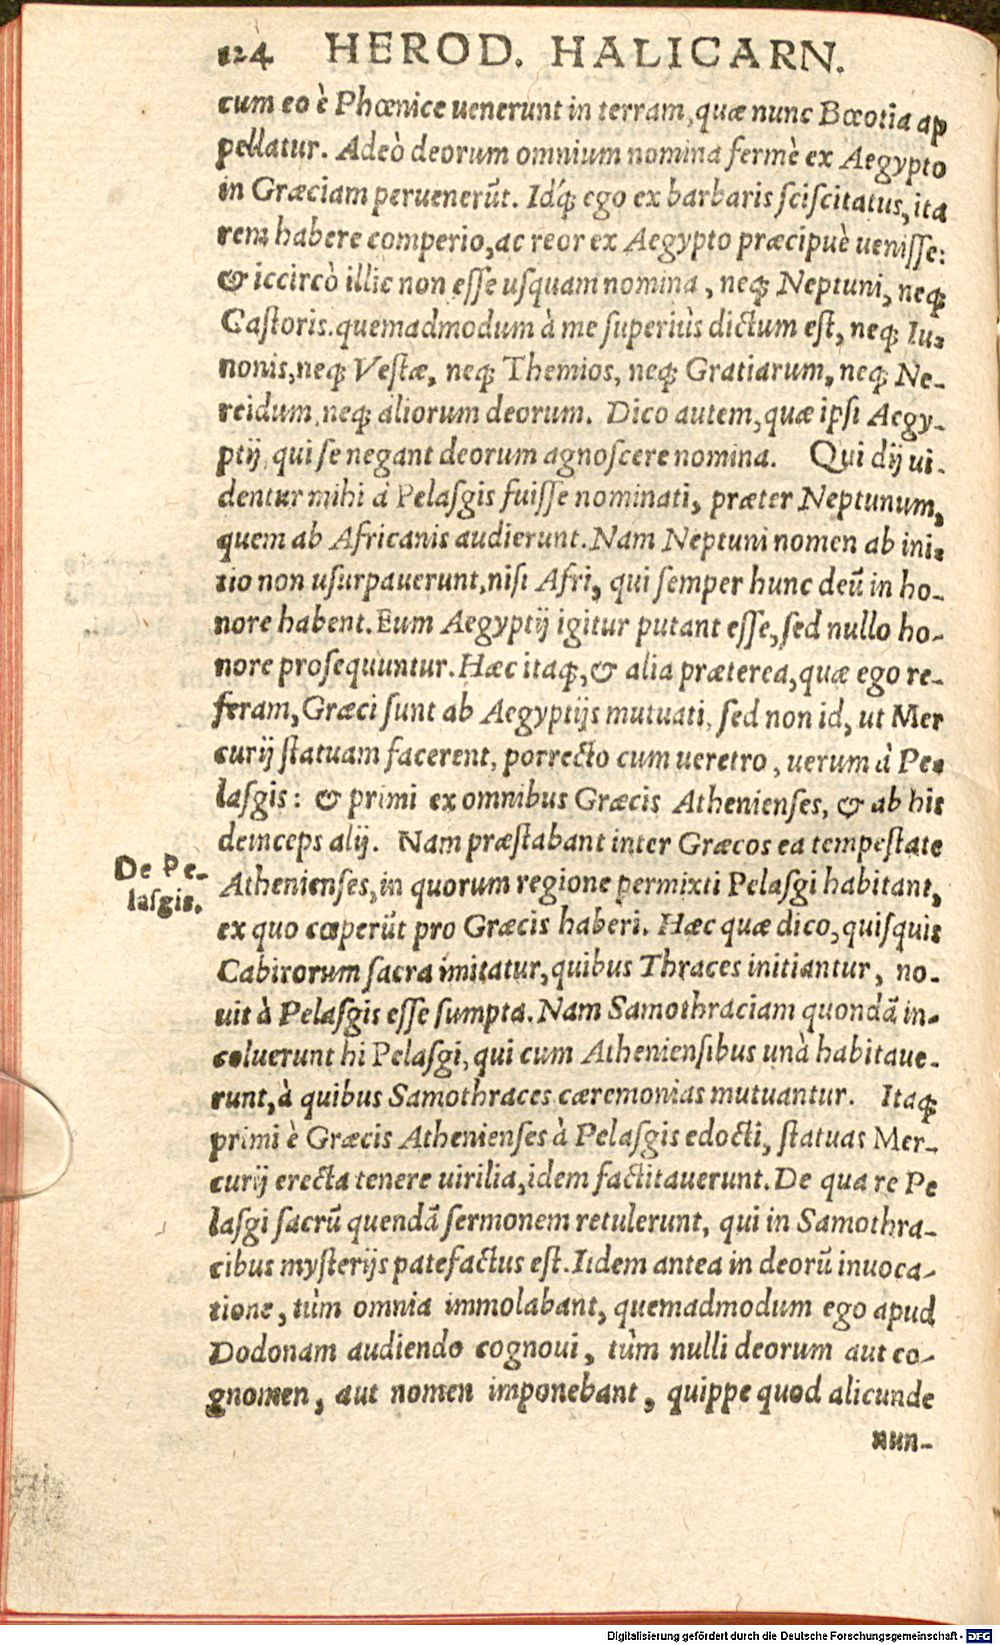 124 HEROD. HALICARN.
cum eo è Phœnice uenerunt in terram, quæ nunc Bœotia ap
pellatur. Adeò deorum omnium nomina fermè ex Aegypto
in Græciam peruenerūt. Idq́; ego ex barbaris ſciſcitatus, ita
rem habere comperio, ac reor ex Aegypto præcipuè ueniſſe:
& iccircò illic non eſſe uſquam nomina, neq; Neptuni, neq;
Caſtoris. quemadmodum à me ſuperiùs dictum eſt, neq; Iu-
nonis, neq; Veſtæ, neq; Themios, neq; Gratiarum, neq; Ne-
reidum, neq; aliorum deorum. Dico autem, quæ ipſi Aegy-
ptij, qui ſe negant deorum agnoſcere nomina. Qui dij ui-
dentur mihi à Pelaſgis fuiſſe nominati, præter Neptunum,
quem ab Africanis audierunt. Nam Neptuni nomen ab ini-
tio non uſurpauerunt, niſi Afri, qui ſemper hunc deū in ho-
nore habent. Eum Aegyptij igitur putant eſſe, ſed nullo ho-
nore proſequuntur. Hæc itaq;, & alia præterea, quæ ego re-
feram, Græci ſunt ab Aegyptijs mutuati, ſed non id, ut Mer
curij ſtatuam facerent, porrecto cum ueretro, uerum à Pe-
laſgis: & primi ex omnibus Græcis Athenienſes, & ab his
deinceps alij. Nam præſtabant inter Græcos ea tempeſtate
De Pe-
laſgis.
Athenienſes, in quorum regione permixti Pelaſgi habitant,
ex quo cœperūt pro Græcis haberi. Hæc quæ dico, quiſquis
Cabirorum ſacra imitatur, quibus Thraces initiantur, no-
uit à Pelaſgis eſſe ſumpta. Nam Samothraciam quondā in-
coluerunt hi Pelaſgi, qui cum Athenienſibus unà habitaue-
runt, à quibus Samothraces cæremonias mutuantur. Itaq;
primi è Græcis Athenienſes à Pelaſgis edocti, ſtatuas Mer-
curij erecta tenere uirilia, idem factitauerunt. De qua re Pe
laſgi ſacrū quendā ſermonem retulerunt, qui in Samothra-
cibus myſterijs patefactus eſt. Iidem antea in deorū inuoca-
tione, tùm omnia immolabant, quemadmodum ego apud
Dodonam audiendo cognoui, tùm nulli deorum aut co-
gnomen, aut nomen imponebant, quippe quod alicunde
nun-
Digitalisierung gefördert durch die Deutsche Forschungsgemeinschaft - DFG